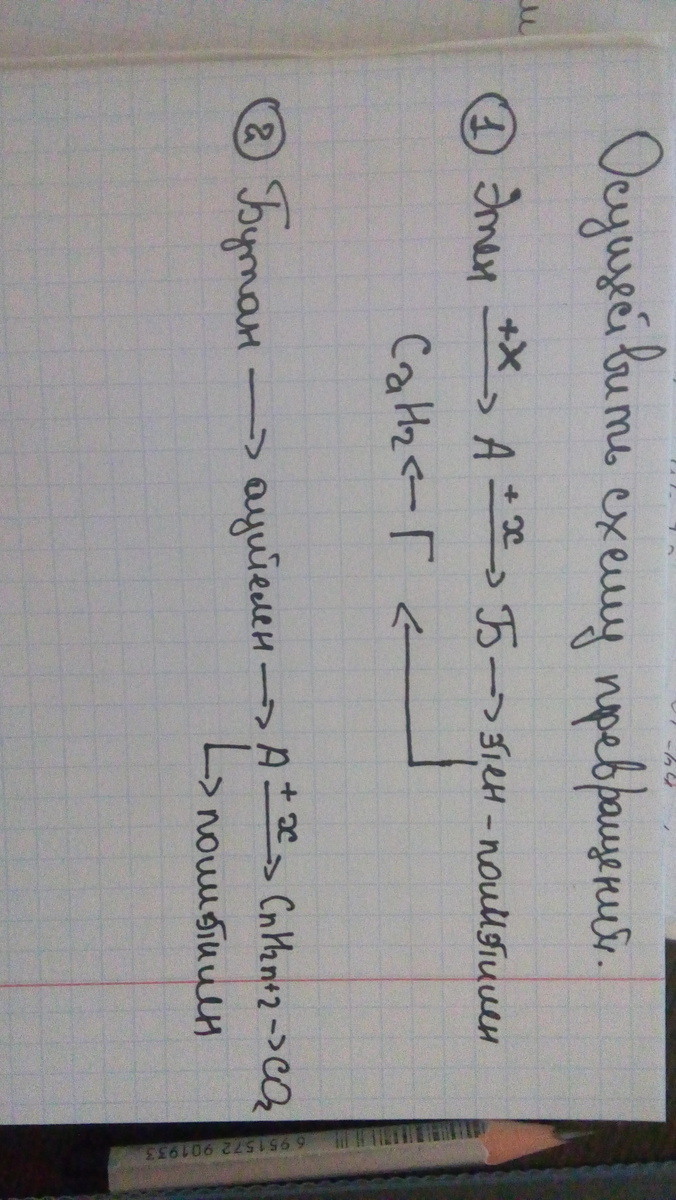 Осуществить схему превращений.
① Этен +X→ А +x→ Б → этен - полиэтилен
C₂H₂ ← Г ←
② Бутан → ацителен → А +x→ CnH2n+2 → CO₂
↳ полиэтилен
6 951572 901933